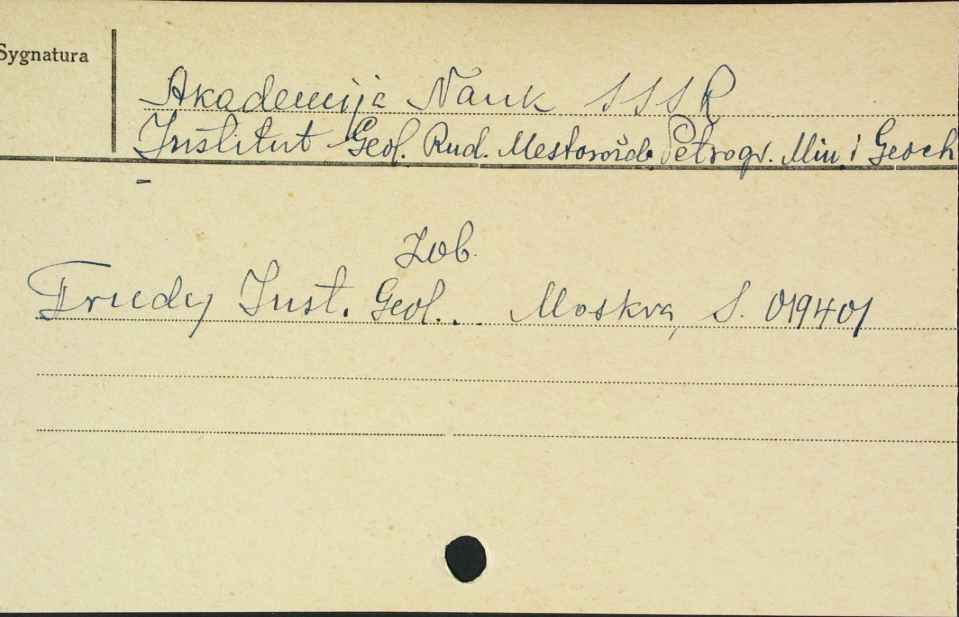 Sygnatura
Akademija Nauk SSSR
Institut Geol. Rud. Mestorožd. Petrogr. Min. i Geoch
Zob.
Trudy Inst. Geol... Moskva, S. 0|940|